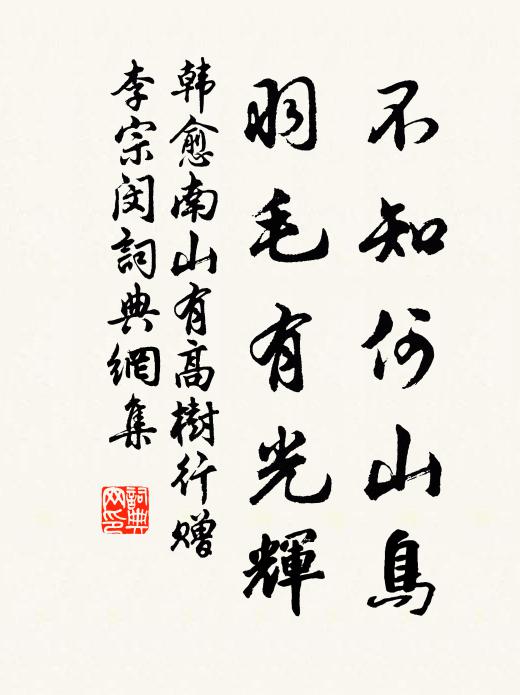 不知何山鳥
羽毛有光輝
韩愈南山有高樹行赠
李宗闵詞典網集
詞典网印